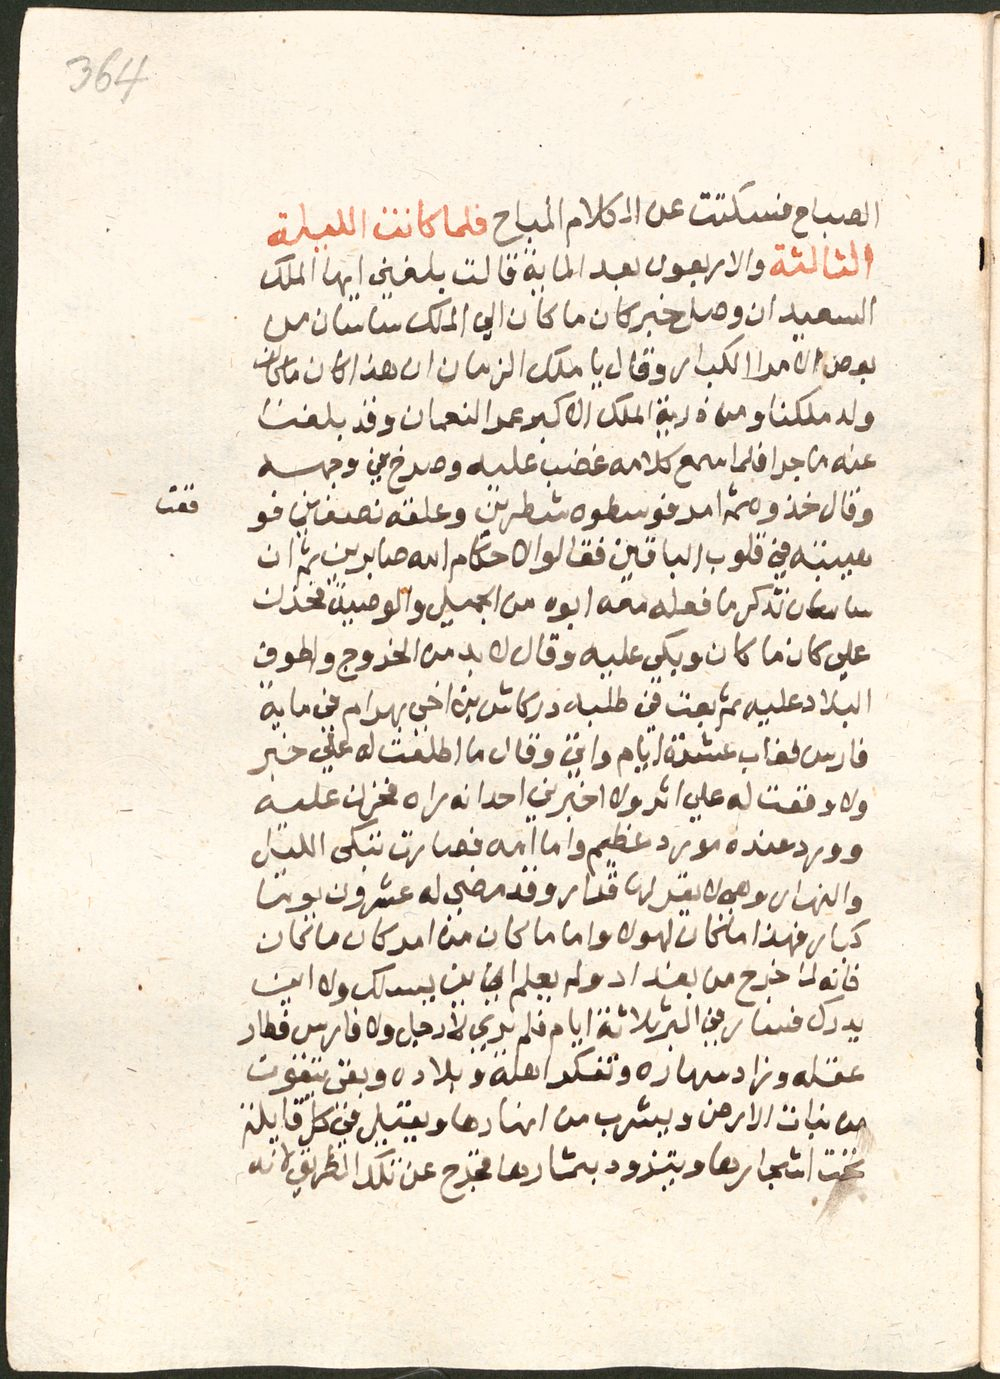 364
الصباح فسكتت عن الكلام المباح فلما كانت الليلة
الثالثة والاربعون بعد الماية قالت بلغني ايها الملك
السعيد ان وصل خبر كان ما كان الي الملك ساسان من
بعض الامرا الكبار وقال يا ملك الزمان ان هذا كان ما كان
ولد ملكنا ومن ذرية الملك الاكبر عمر النعمان وقد بلغنا
عنه ما جرا فلما سمع كلامه غضب عليه وصرخ في وجهه
وقال خذوه ثم امر فوسطوه شطرين وعلقه نصفين فو
فقت
هيبته في قلوب الباقين فقالوا الاحكام لله صابرين ثم ان
ساسان تذكر ما فعله معه ابوه من الجميل والوصية فحزن
علي كان ما كان وبكي عليه وقال لا بد من الخروج واطوف
البلاد عليه ثم بعث في طلبه دركاش بن اخي بهرام في ماية
فارس فغاب عشرة ايام واتي وقال ما اطلعت له علي خبر
ولا وقعت له علي اثر ولا اخبرني احد انه راه فحزن عليه
وورد عنده مورد عظيم واما امه فصارت تبكي الليل
والنهار وهي لا يقر لها قرار وقد مضي له عشرون يوما
كبار فهذا ما كان لهولا واما ما كان من امر كان ما كان
فانه لما خرج من بغداد ولم يعلم اي اين يسلك ولا اين
يدرك فسار في البر ثلاثة ايام فلم يري لا رجل ولا فارس فطار
عقله وزاد سهاره وتفكر اهله وبلاده وبقي يتقوت
من نبات الارض ويشرب من انهارها ويقيل في كل قايلة
تحت اشجارها ويتزود بثمارها فخرج عن تلك الطريق لانه